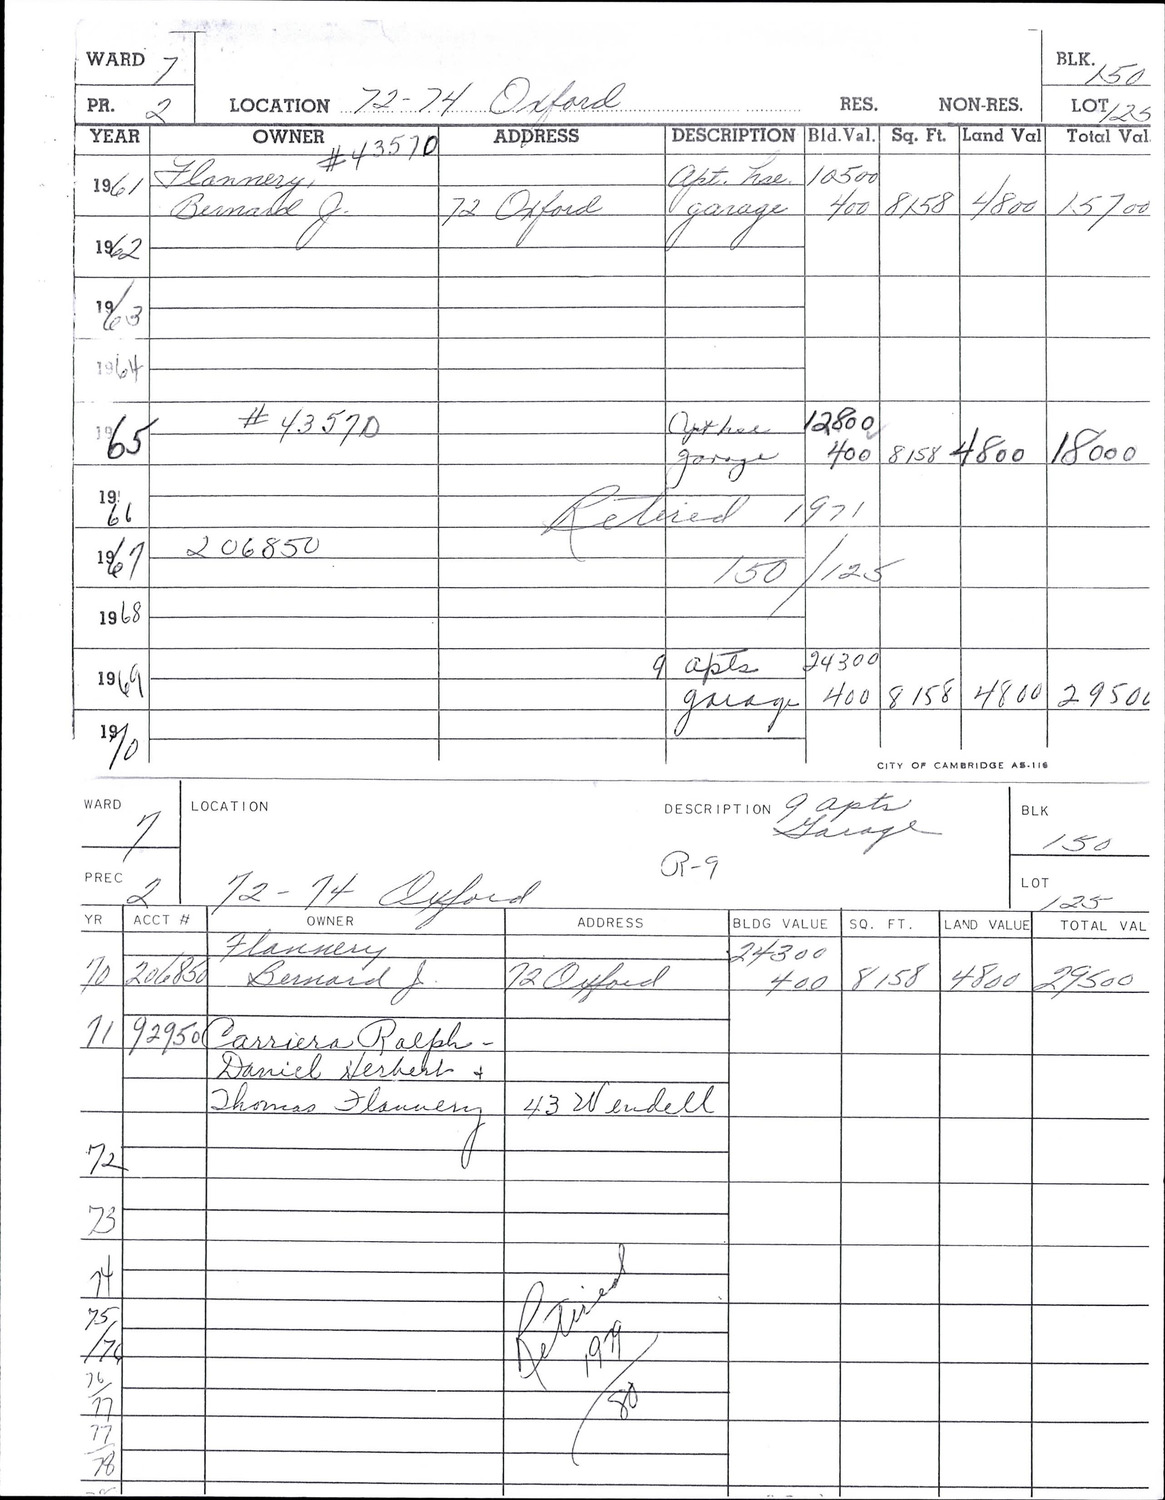 WARD 7 BLK. 150
PR. 2 LOCATION 72-74 Oxford RES. NON-RES. LOT 125
YEAR OWNER ADDRESS DESCRIPTION Bld.Val. Sq. Ft. Land Val Total Val.
#43570
1961 Flannery, Apt. hse. 10500
Bernard J. 72 Oxford garage 400 8158 4800 15700
1962
1963
1964
1965 #43570 Apt hse 12800
garage 400 8158 4800 18000
1966 Retired 1971
1967 206850
150/125
1968
1969 9 apts 24300
garage 400 8158 4800 29500
1970
CITY OF CAMBRIDGE AS-116
WARD 7 LOCATION DESCRIPTION 9 apts BLK
Garage 150
R-9
PREC 2 72-74 Oxford LOT 125
YR ACCT # OWNER ADDRESS BLDG VALUE SQ. FT. LAND VALUE TOTAL VAL
Flannery 24300
70 206850 Bernard J. 72 Oxford 400 8158 4800 29500
71 92950 Carriera Ralph -
Daniel Herbert +
Thomas Flannery 43 Wendell
72
73
74
75/76 Retired 1979/80
76/77
77/78